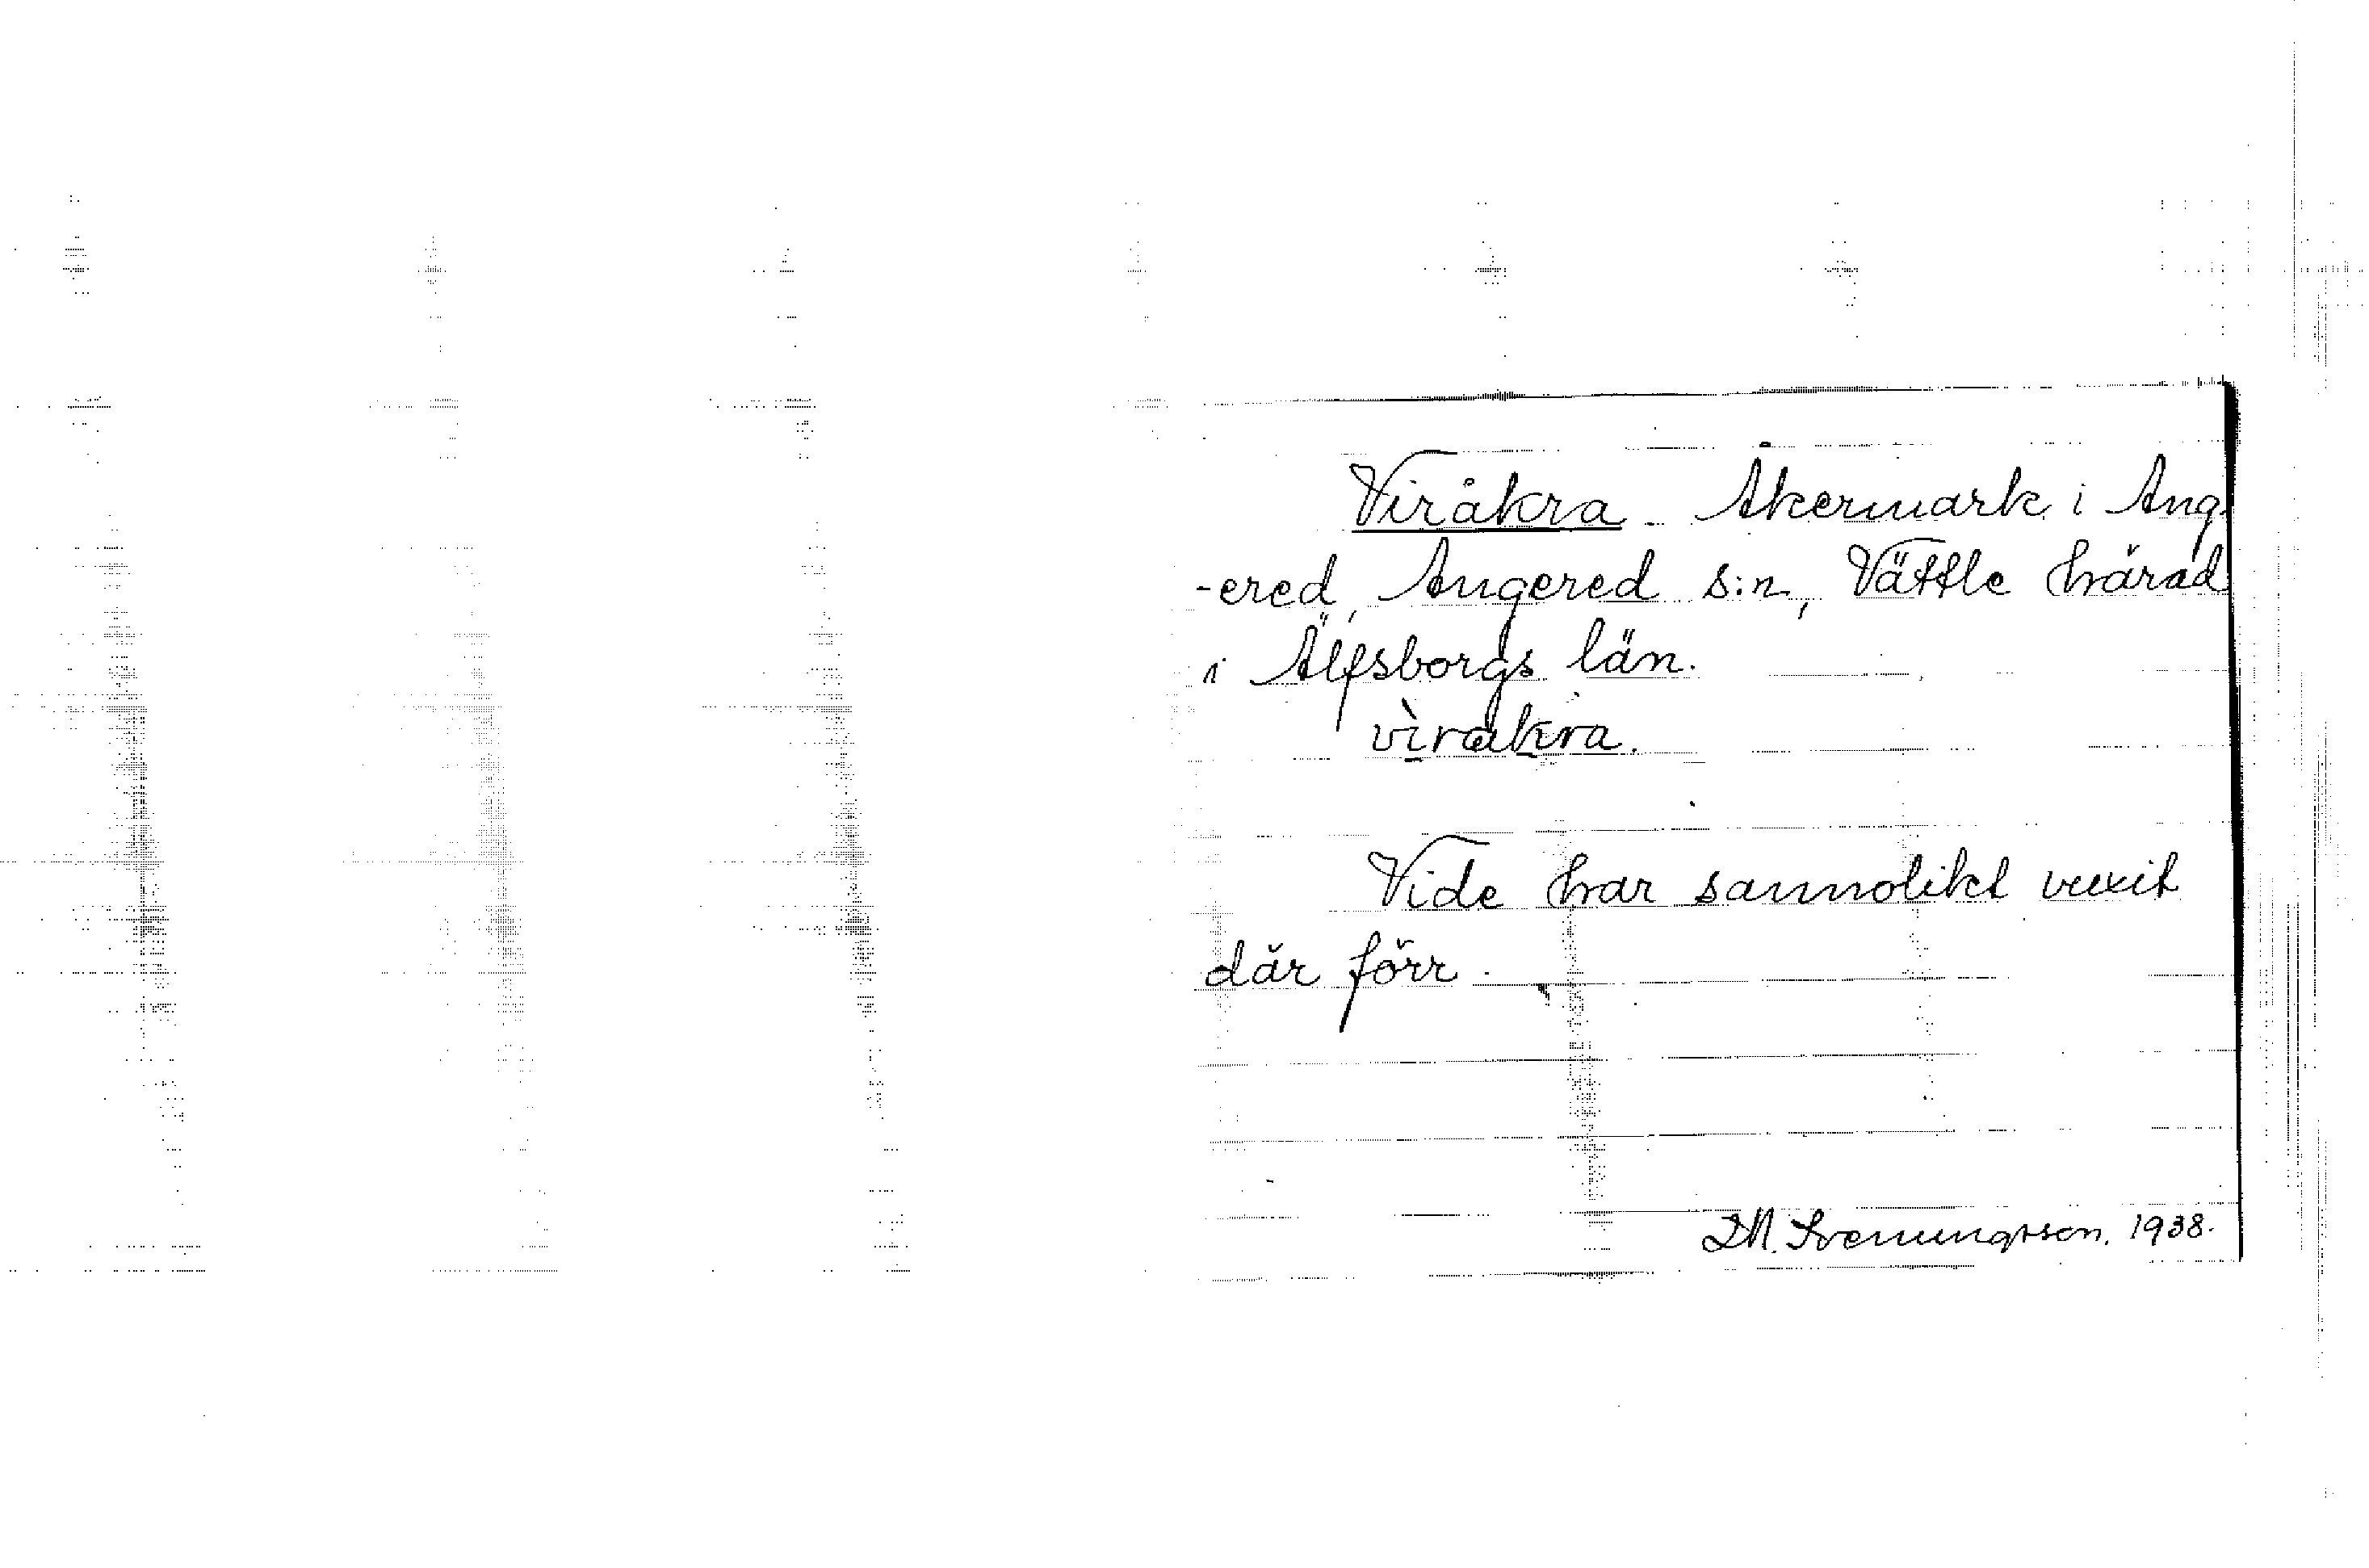 Viråkra - Åkermark i Ang
-ered, Angered s:n, Vättle härad
i Älfsborgs län.
vìråkra.
Vide har sannolikt vuxit
där förr.
1938.